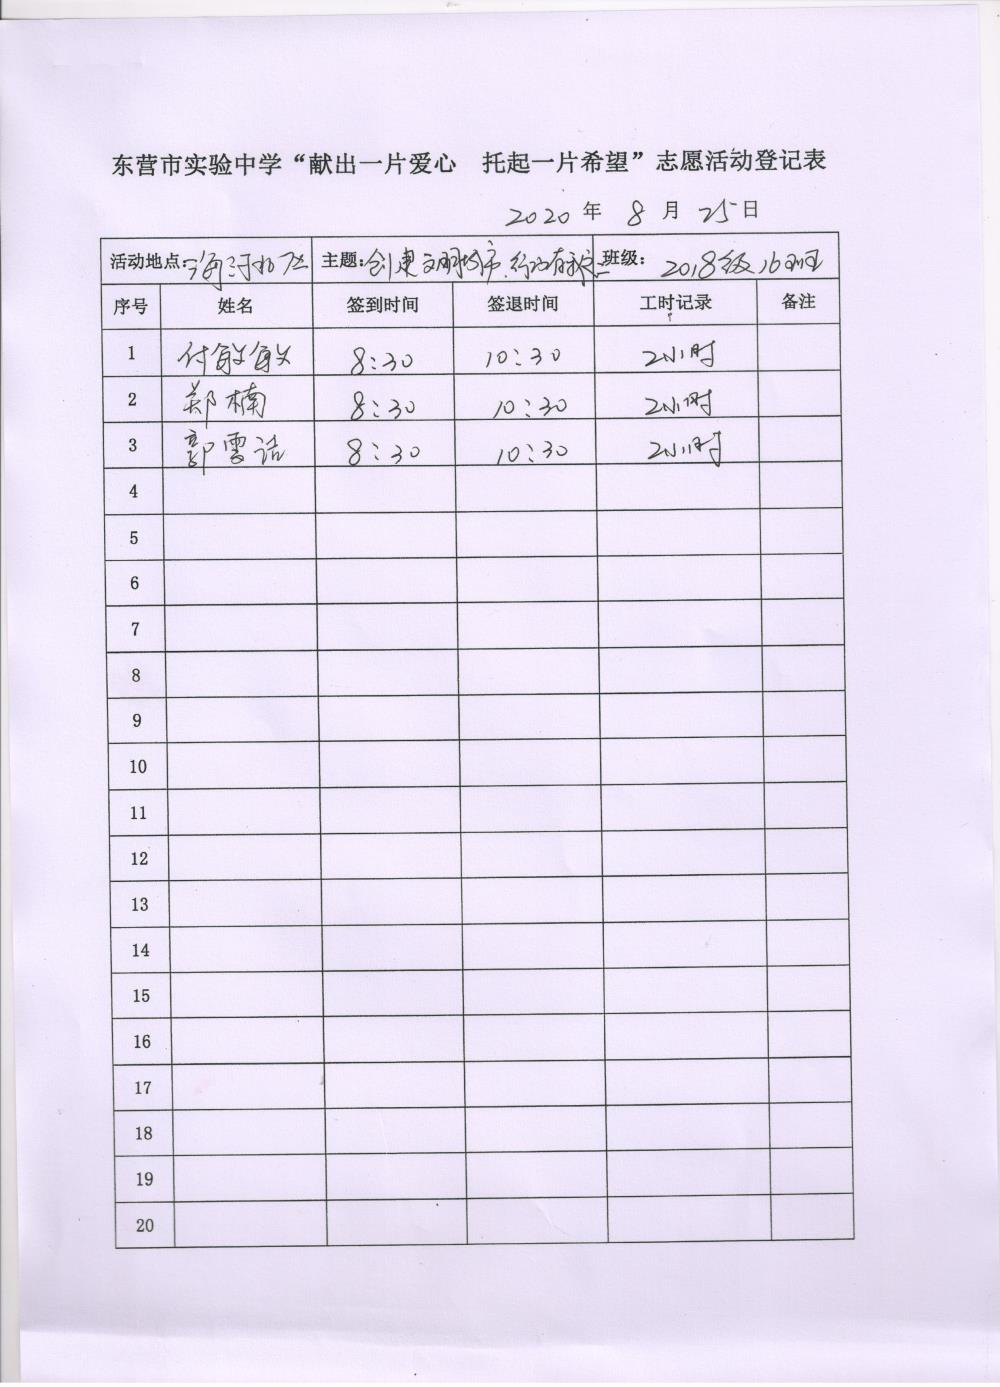 东营市实验中学“献出一片爱心 托起一片希望”志愿活动登记表
2020 年 8 月 25日
活动地点: 海河小区 主题:创建文明城市, 班级: 2018级16班
序号 姓名 签到时间 签退时间 工时记录 备注
1 付敏敏 8:30 10:30 2小时
2 郑楠 8:30 10:30 2小时
3 郭雲洁 8:30 10:30 2小时
4
5
6
7
8
9
10
11
12
13
14
15
16
17
18
19
20